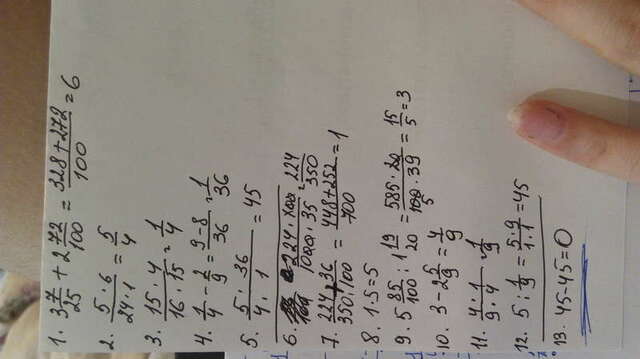 1. 3 7/25 + 2 72/100 = (328+272)/100 = 6
2. (5 · 6)/(24 · 1) = 5/4
3. (15 · 4)/(16 · 15) = 1/4
4. 1/4 - 2/9 = (9-8)/36 = 1/36
5. (5 · 36)/(4 · 1) = 45
6. (224 · 1000)/(1000 · 35) = 224/350
7. 224/350 + 36/100 = (448+252)/700 = 1
8. 1·5=5
9. 5 85/100 : 1 19/20 = (585 · 20)/(100 · 39) = 15/5 = 3
5
10. 3 - 2 5/9 = 4/9
11. (4 · 1)/(9 · 4) = 1/9
12. 5 : 1/9 = (5 · 9)/(1 · 1) = 45
13. 45-45=0